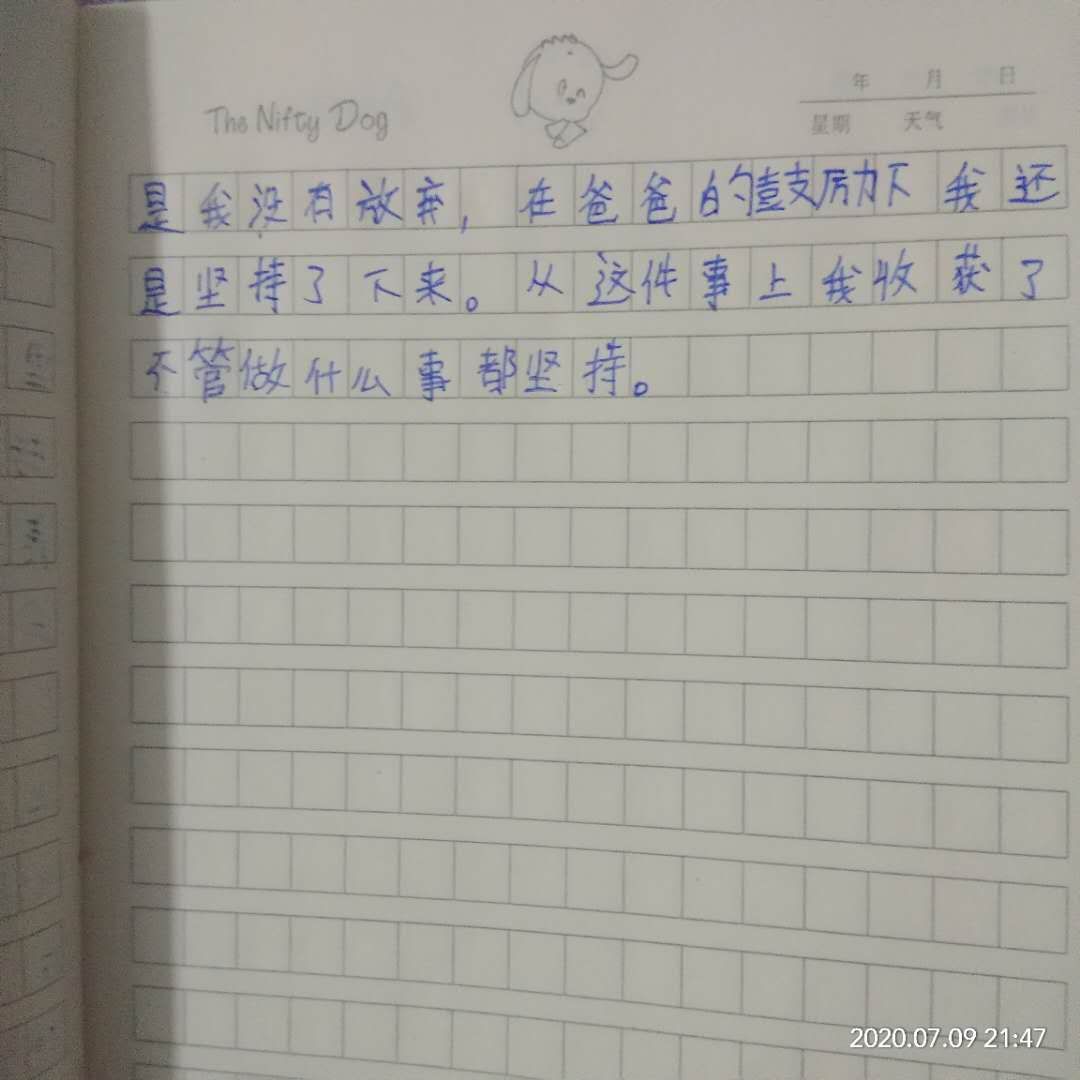 The Nifty Dog
年 月 日
星期 天气
是我没有放弃，在爸爸的鼓厉力下我还
是坚持了下来。从这件事上我收获了
不管做什么事都坚持。
2020.07.09 21:47